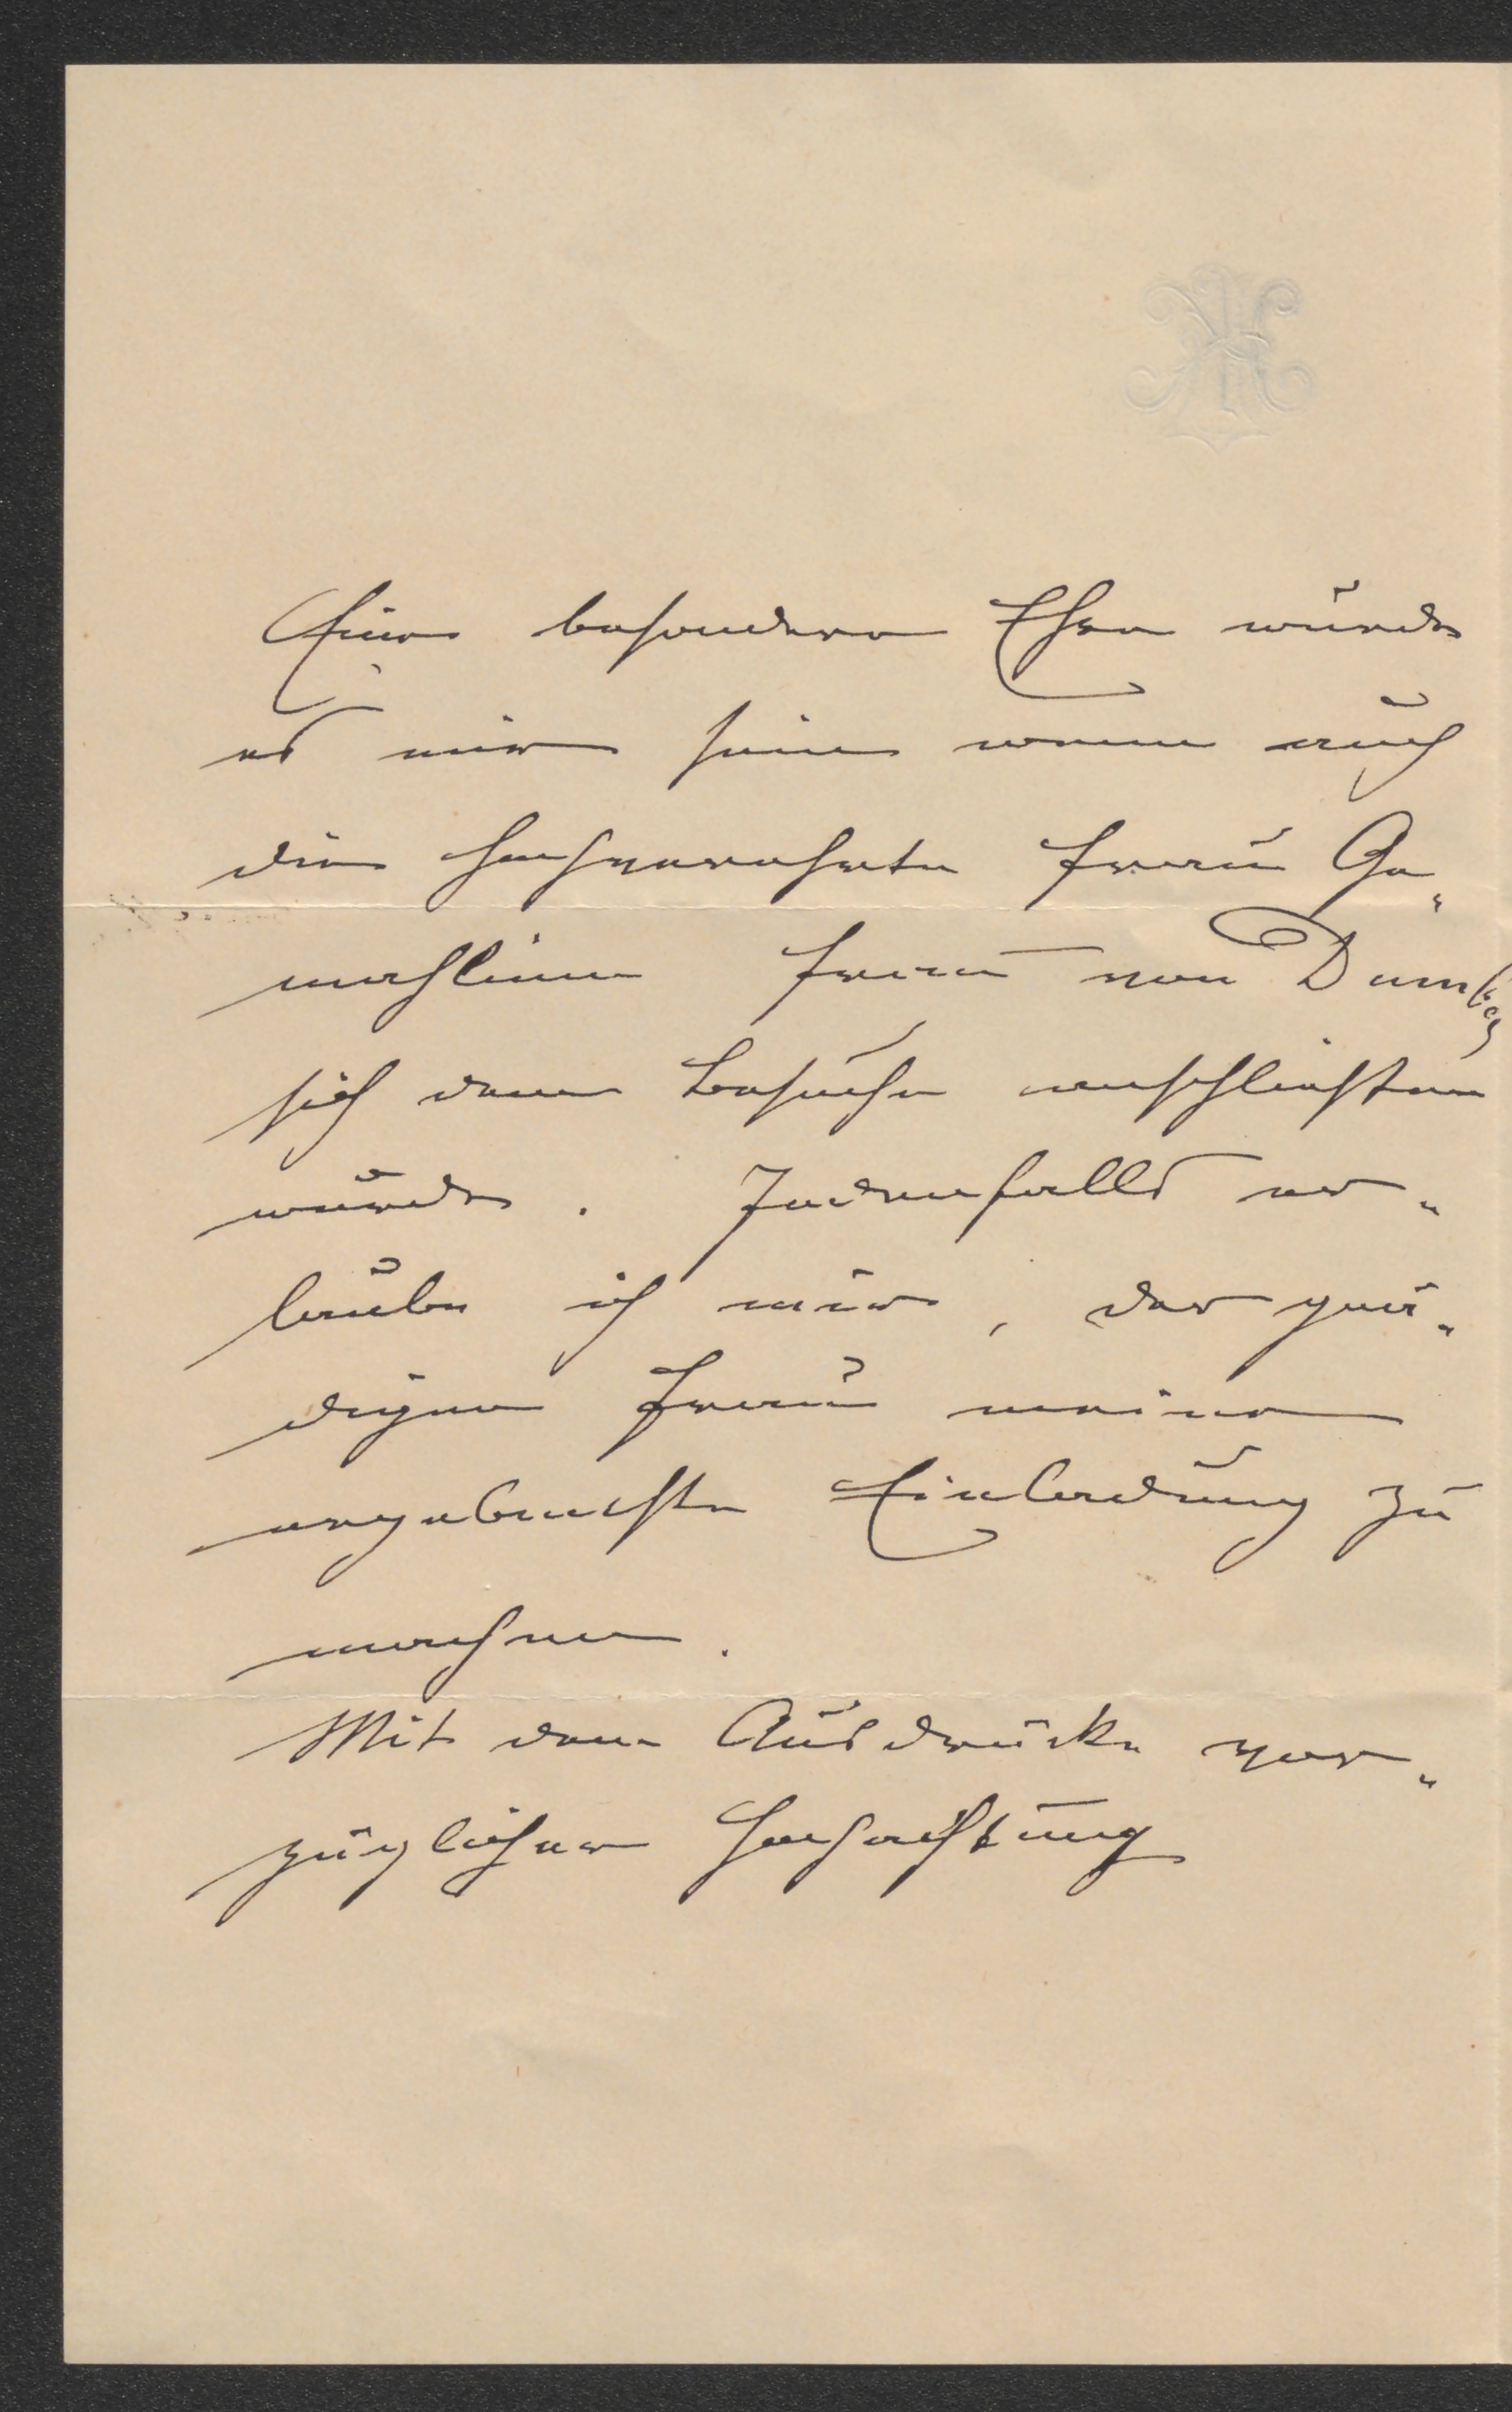 Eine besondere Ehre würde
es mir sein wenn auch
die hochverehrte Frau Ge„
mahlin Frau von Dumba
sich dem Besuche anschließen
würde. Jedenfalls er„
laube ich mir, der gnä„
digen Frau meine
ergebenste Einladung zu
machen.
Mit dem Ausdrucke vor„
züglicher Hochachtung